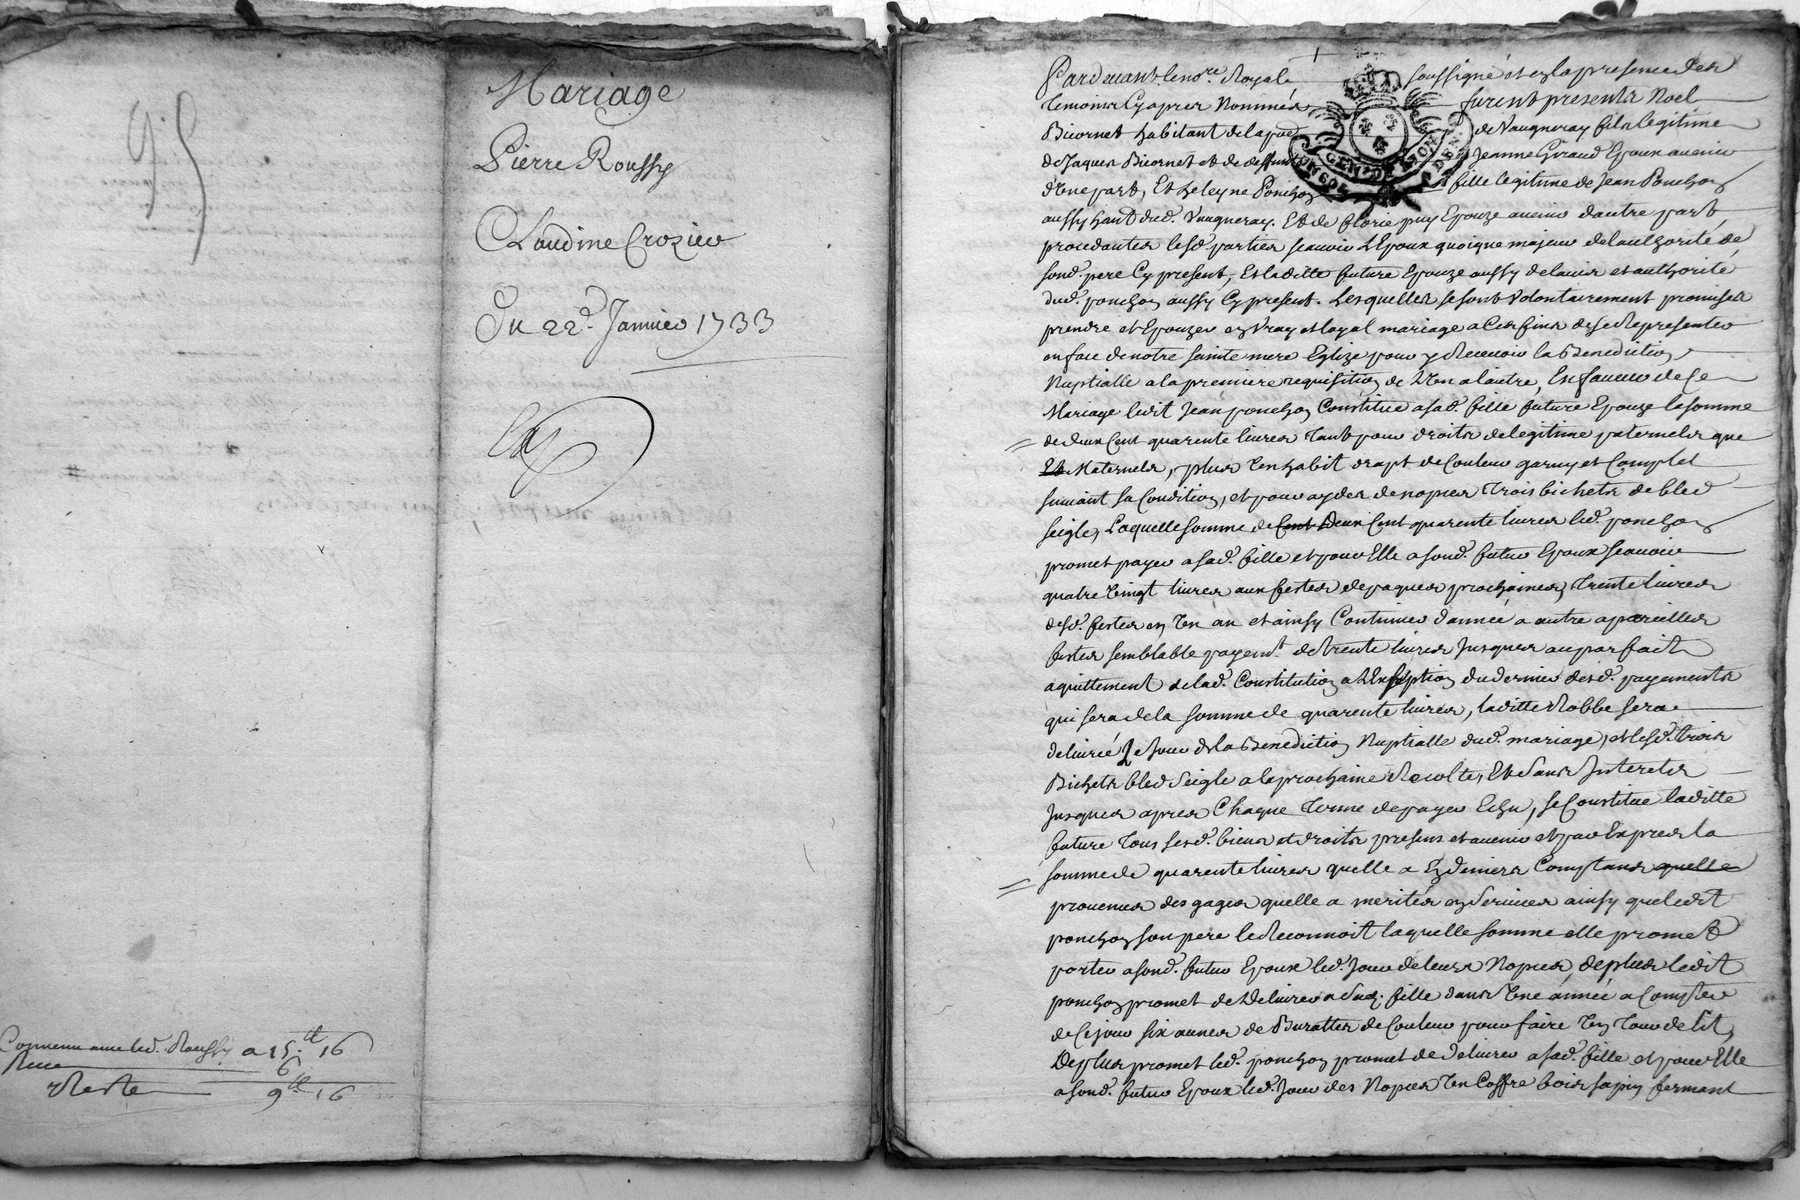 95
Mariage
Pierre Roussy
Claudine Crozier
Du 22d. Janvier 1733
Convenu avec led. Roussy a 15tt 16
Receu 6
Reste 9tt 16
Pardevant le nore. Royal soussigné et en la presence des
temoins Cy apres Nommés furent presents Noel
Bicornet habitant de la pade de Vaugneray fils legitime
de Jaques Bicornet et de deffunte Jeanne Giraud Epoux avenir
d'une part, Et heleyne Ponchon fille legitime de Jean Ponchon
aussy hant dud. Vaugneray. Et de florie puy Epouze avenir dautre part,
procedantes lesd. parties scauoir L'Epoux quoique majeur de lauthorité de
sond. pere Cy present, Et laditte future Epouze aussy de lavis et authorité
dud. ponchon aussy Cy present. Lesquelles se sont volontairement promises
prendre et Epouzer en Vray et loyal mariage a Ces fins de se Representer
en face de notre sainte mere Eglize pour y Recevoir la Benediction
Nuptialle a la premiere requisition de L'un a lautre, En faveur de Ce
Mariage ledit Jean ponchon Constitue a sad. fille future Epouze la somme
de deux Cent quarente livres tant pour droits de legitime paternels que
Maternels, plus un habit drapt de Couleur garny et Complet
suivant sa Condition, et pour ayder de nopces trois bichets de bled
seigle, Laquelle somme de Cent Deux Cent quarente livres led. ponchon
promet payer a sad. fille et pour Elle a sond. futur Epoux scauoir
quatre vingt livres aux festes de paques prochaines, trente livres
desd. festes en un an et ainsy Continuer d'année a autre a pareilles
festes semblable payemt. de trente livres Jusques au parfait
aquittement de lad. Constitution a L'Exseption du dernier desd. payements
qui sera de la somme de quarente livres, laditte Robbe sera
delivrée Le Jour de la Benediction Nuptialle dud. mariage, et lesd. trois
Bichets bled seigle a la prochaine Recolte, Et sans Interets
Jusques apres Chaque terme de payer Echu, se Constitue laditte
future tous sesd. biens et droits presens et avenir et par Expres la
somme de quarente livres quelle a En deniers Comptans quelle
provenus des gages quelle a merités en services ainsy que ledit
ponchon son pere le Reconnoit laquelle somme elle promet
porter a sond. futur Epoux led. Jour de leurs Nopces, de plus ledit
ponchon promet de Delivrer a sad. fille dans une année a Compter
de Ce jour six aunes de Buratte de Couleur pour faire un tour de lit,
De plus promet led. ponchon promet de delivrer a sad. fille et pour Elle
a sond. futur Epoux led. Jour des Nopces un Coffre bois sapin fermant